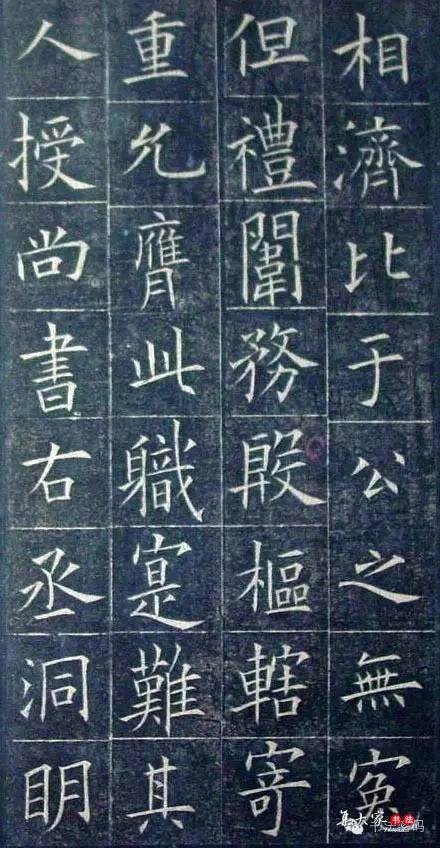 相濟比于公之無寃
但禮闈務殷樞轄寄
重允膺此職寔難其
人授尚書右丞洞眀
集大家 书法